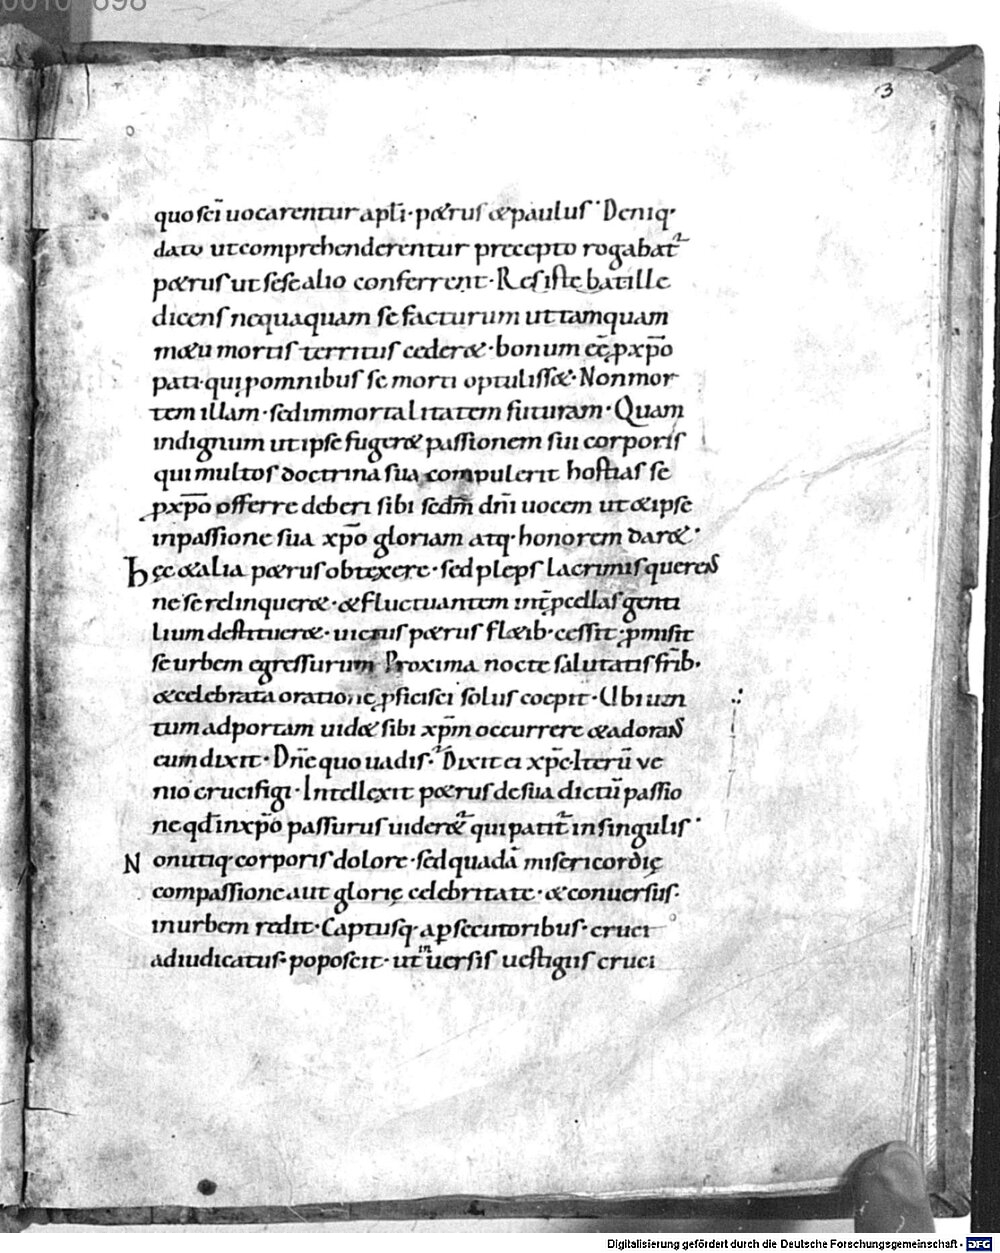 3
quo sc̄i uocarentur apłi · petrus & paulus · Deniq·
dato ut comprehenderentur precepto rogabat᷑
petrus ut sese alio conferrent · Resiste batille
dicens nequaquam se facturum ut tamquam
metu mortis territus ceder& · bonum eē ꝑ xp̄o
pati · qui ꝓ omnibus se morti optuliss& · Non mor
tem illam · sed immortalitatem futuram · Quam
indignum ut ipse fuger& passionem sui corporis
qui multos doctrina sua compulerit hostias se
ꝑ xp̄o offerre deberi sibi scd̄m dn̄i uocem ut & ipse
in passione sua xp̄o gloriam atq· honorem dar& ·
hęc & alia petrus obtexere · sed pleps lacrimis querens
ne se relinquer& · & fluctuantem int̄ ꝓcellas genti
lium destituer& · uictus petrus fl&ib· cessit · ꝓmisit
se urbem egressurum · Proxima nocte salutatis fr̄ib·
& celebrata oratione ꝓficisci solus coepit · Ubi uen
tum ad portam uid& sibi xp̄m occurrere & adorans
eum dixit · Dn̄e quo uadis · Dixit ei xp̄c · Iterū ve
nio crucifigi · Intellexit petrus de sua dictū passio
ne qd̄ in xp̄o passurus uider&᷑ qui patit᷑ in singulis ·
Non utiq· corporis dolore · sed quadā misericordię
compassione aut glorię celebritate · & conuersus ·
in urbem redit · Captusq· a ꝑsecutoribus · cruci
adiudicatus · poposcit · ut inuersis uestigiis cruci
Digitalisierung gefördert durch die Deutsche Forschungsgemeinschaft - DFG